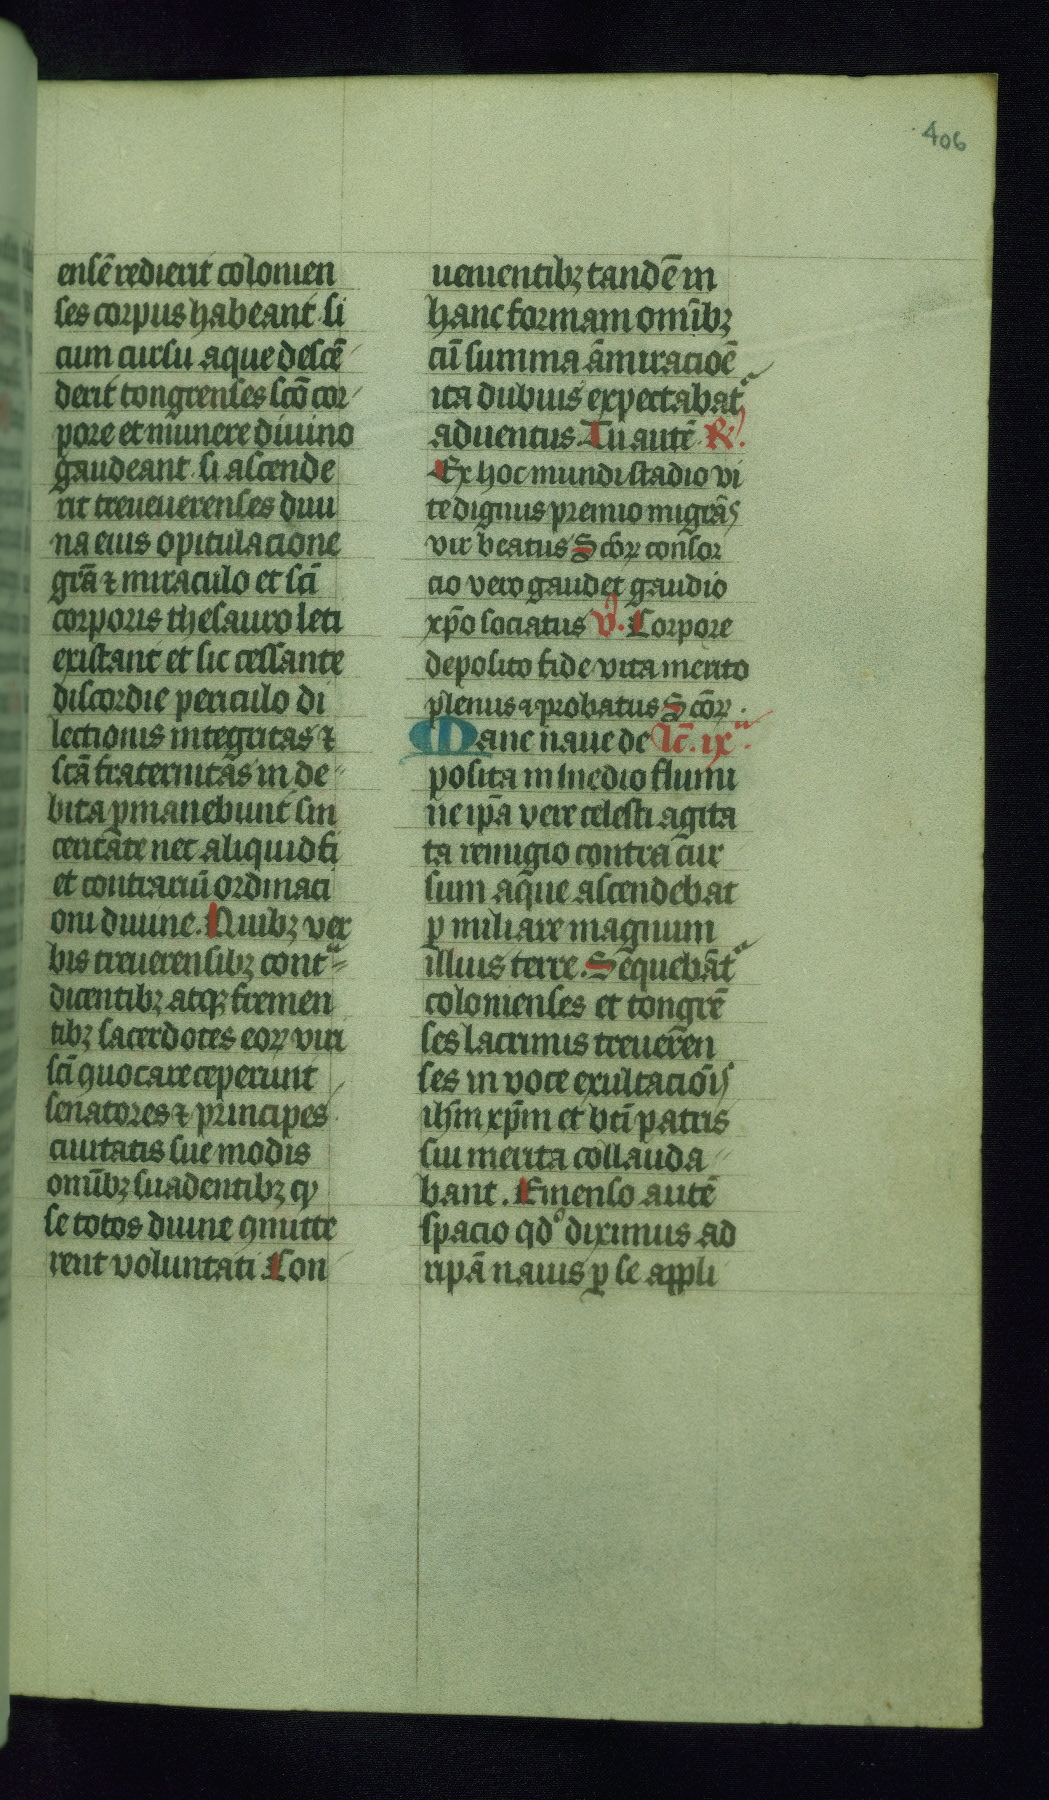 406
ensē redierit colonien
ses corpus habeant si
cum cursu aque descē
derit tongrenses scō cor
pore et munere diuino
gaudeant si ascende
rit treueuerenses diui
na eius opitulacione
grā ⁊ miraculo et scī
corporis thesauro leti
existant et sic cessante
discordie periculo di
lectionis integritas ⁊
scā fraternitas in de
bita ꝑmanebunt sin
ceritate nec aliquid fi
et contrariū ordinaci
oni diuine. Quibꝫ ver
bis treuerensibꝫ contᵃ
dicentibꝫ atqꝫ fremen
tibꝫ sacerdotes eoꝝ viri
scī quoc are ceperunt
senatores ⁊ principes
ciuitatis sue modis
omībꝫ suadentibꝫ ꝙ
se totos diuine ꝯmitte
rent voluntati Con
uenientibꝫ tandē in
hanc formam omībꝫ
cū summa āmiracioē
ita dubius expectabatᵘ
aduentus. Tu autē ℟.
Ex hoc mundi stadio vi
te dignus premio migrās
vir beatus Scōꝝ consor
cio vero gaudet gaudio
xp̄o sociatus ℣. Corpore
deposito fide vita merito
plenus ⁊ probatus Scōꝝ.
Manc naue de Lc̄. ixᵃ.
posita in medio flumi
ne ip̄a vere celesti agita
ta remigio contra cur
sum aque ascendebat
ꝑ miliare magnum
illius terre. Sequebātᵘ
colonienses et tongrē
ses lacrimis treueren
ses in voce exultacōis
ihm̄ xp̄m et bti patris
sui merita collauda
bant. Emenso autē
spacio qd° diximus ad
ripā nauis ꝑ se appli